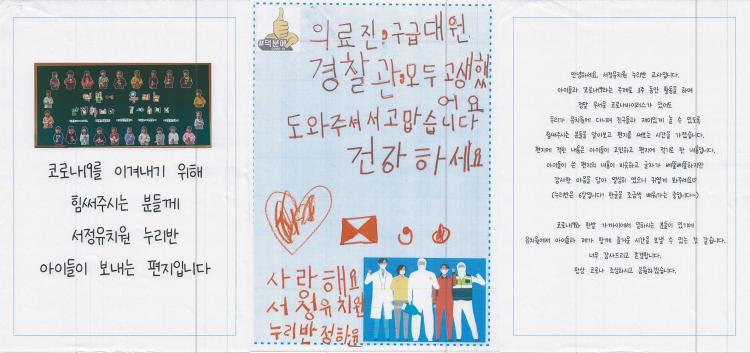 코로나19를 이겨내기 위해
힘써주시는 분들께
서정유치원 누리반
아이들이 보내는 편지입니다
#덕분에
의료진, 구급대원
경찰관, 모두 고생했
어요
도와주셔서 고맙습니다
건강하세요
사랑해요
서정유치원
누리반 정하윤
안녕하세요. 서정유치원 누리반 교사입니다.
아이들과 코로나19라는 주제로 3주 동안 활동을 하며
정말 무서운 코로나바이러스가 있어도
우리가 유치원에 다니며 친구들과 재미있게 놀 수 있도록
힘써주시는 분들을 알아보고 편지를 써보는 시간을 가졌습니다.
편지에 적힌 내용은 아이들이 고민하고 편지에 적기로 한 내용입니다.
아이들이 쓴 편지의 내용이 비슷하고 글자가 삐뚤빼뚤하지만
감사한 마음을 담아 열심히 썼으니 귀엽게 봐주세요♡
(누리반은 6살입니다! 한글을 조금씩 배워가는 중입니다~)
코로나19와 한발 가까이에서 일하시는 분들이 있기에
유치원에서 아이들과 제가 함께 즐거운 시간을 보낼 수 있는 것 같습니다.
너무 감사드리고 존경합니다.
항상 코로나 조심하시고 응원하겠습니다.